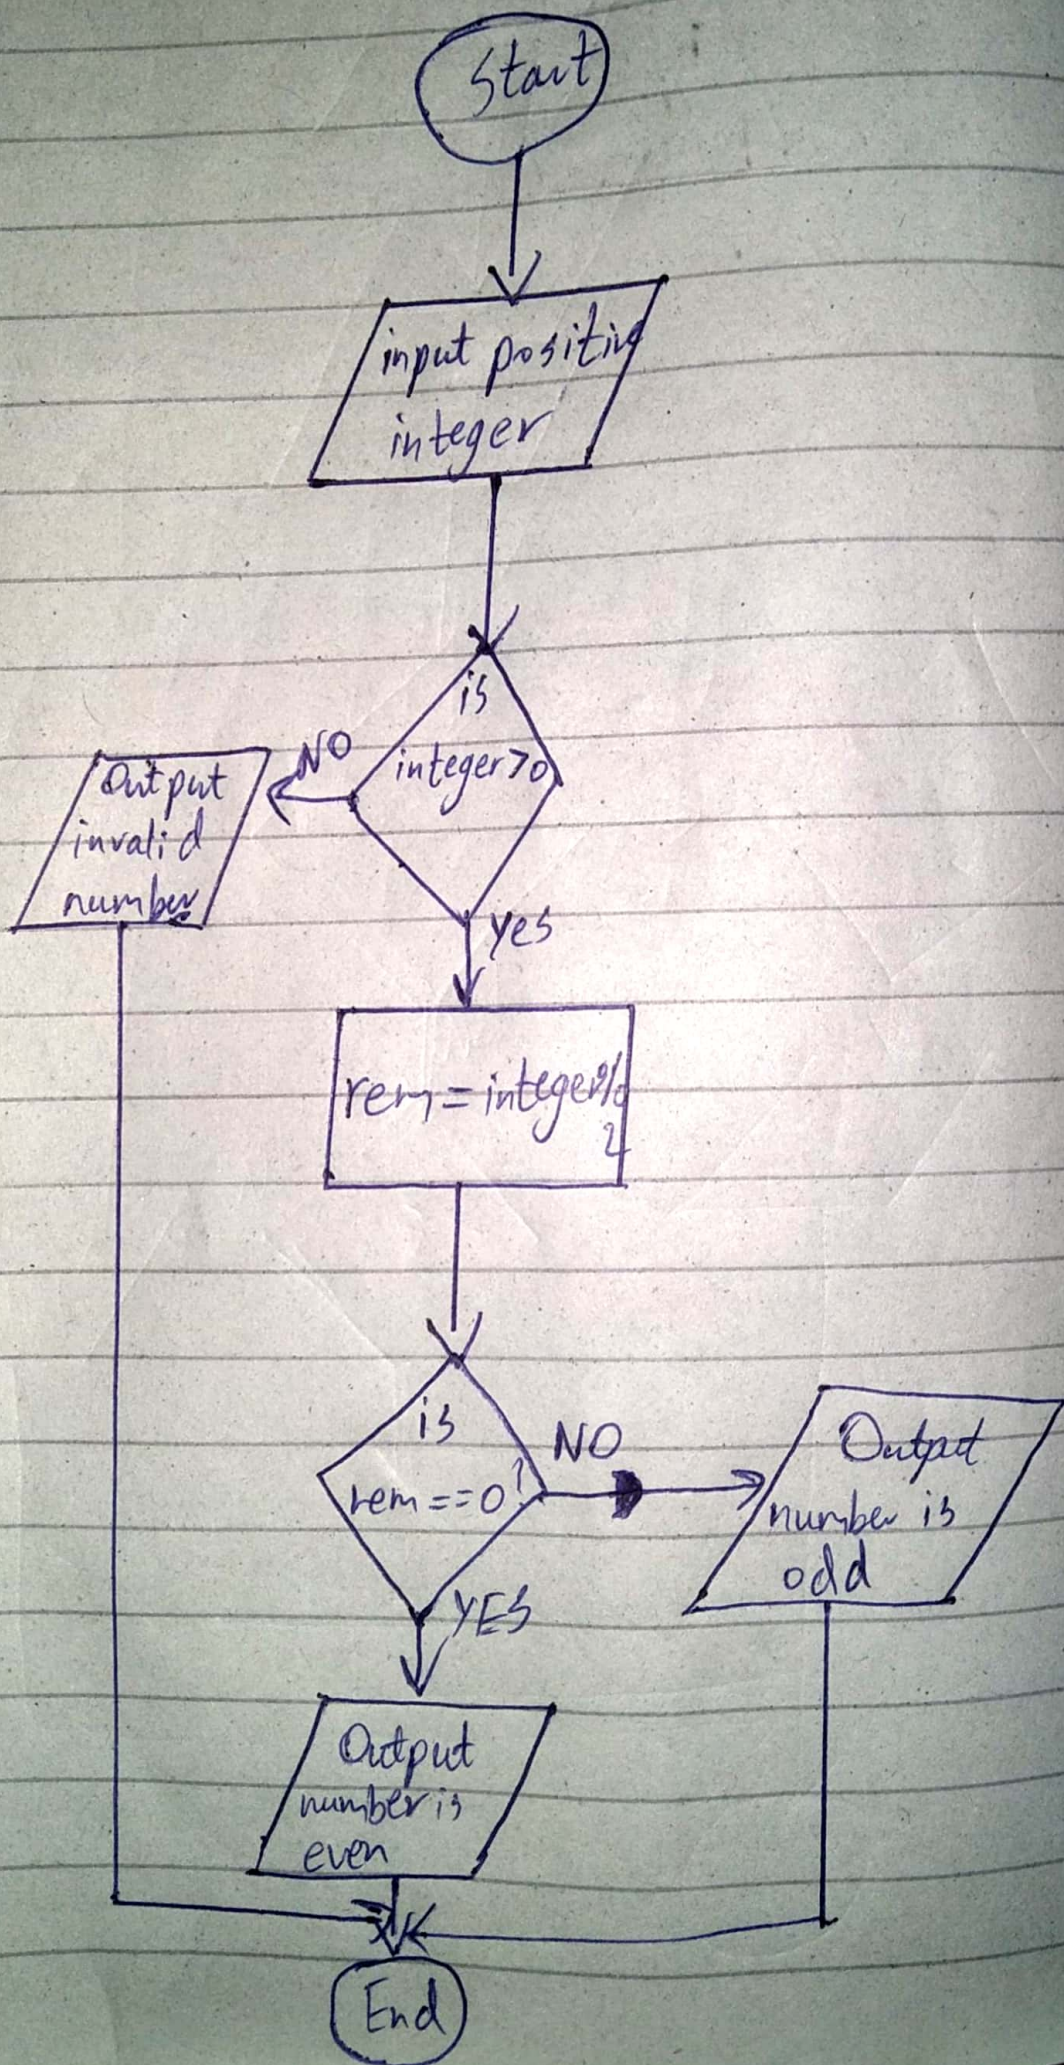 Start
input positive
integer
is
integer>0
NO
Output
invalid
number
yes
rem = integer%
2
is
rem==0?
NO
Output
number is
odd
YES
Output
number is
even
End